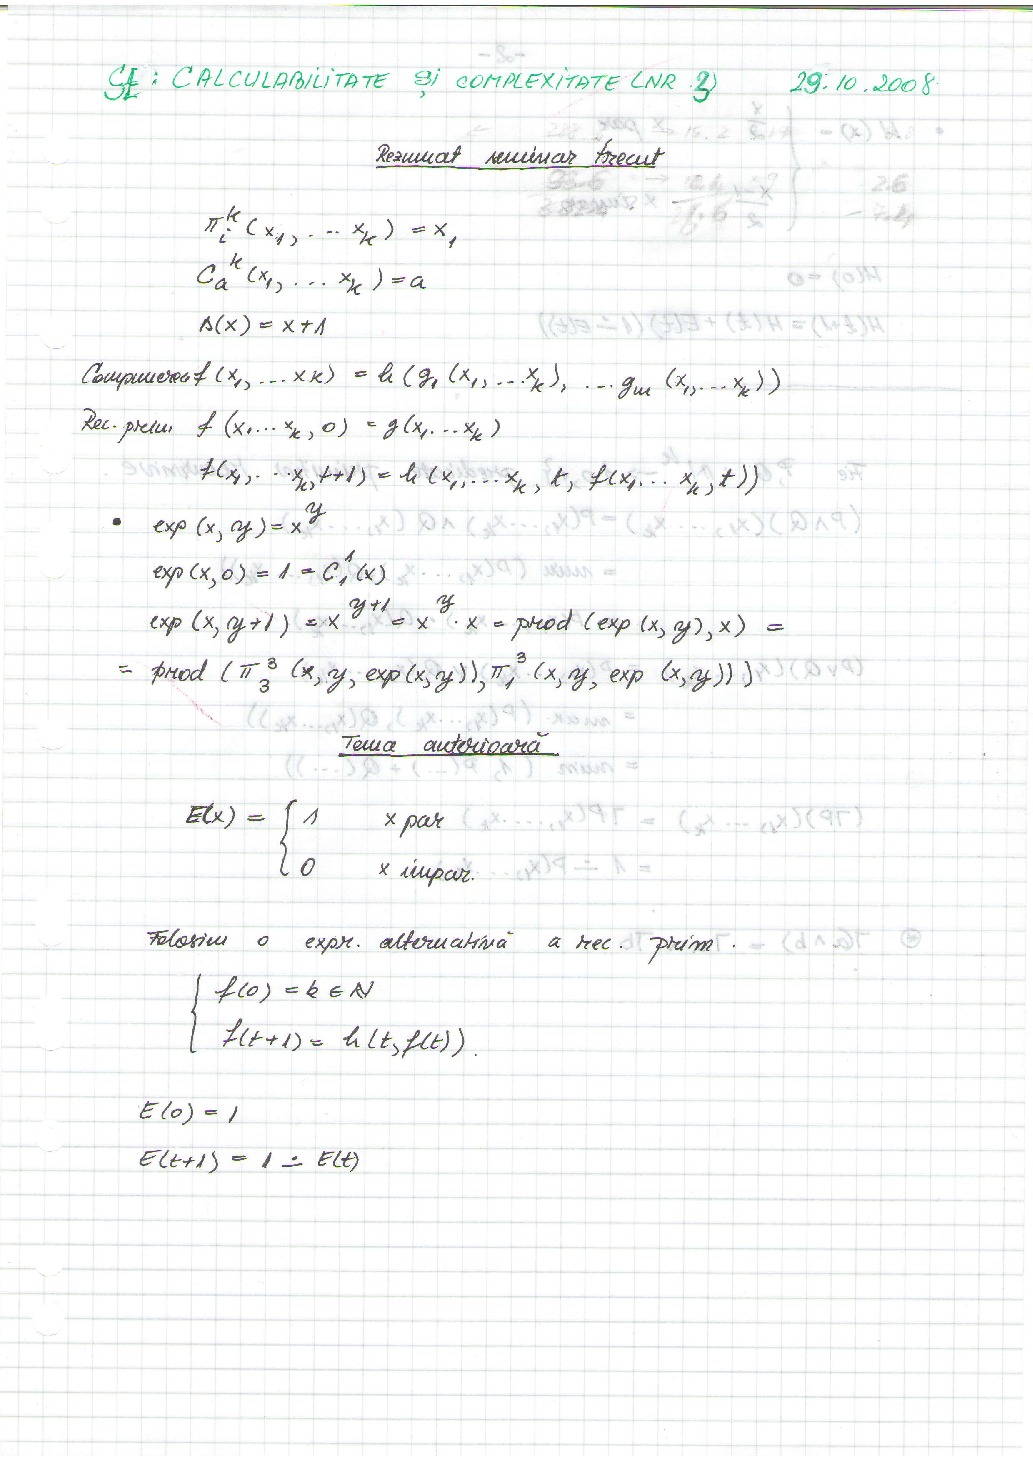 CALCULABILITATE ȘI COMPLEXITATE (NR. 3) 29.10.2008
Rezumat seminar trecut
π_i^k (x_1, ... x_k) = x_1
C_a^k (x_1, ... x_k) = a
s(x) = x+1
Compunerea f(x_1, ... xk) = h(g_1(x_1, ... x_k), ... g_m (x_1, ... x_k))
Rec. prim. f(x_1 ... x_k, 0) = g(x_1 ... x_k)
f(x_1, ... x_k, t+1) = h(x_1, ... x_k, t, f(x_1 ... x_k, t))
• exp(x, y) = x^y
exp(x, 0) = 1 = C_1^1(x)
exp(x, y+1) = x^{y+1} = x^y · x = prod (exp(x, y), x) =
= prod (π_3^3 (x, y, exp(x, y)), π_1^3 (x, y, exp (x, y)))
Tema anterioară
E(x) = { 1 x par
0 x impar.
Folosim o expr. alternativă a rec. prim.
{ f(0) = k ∈ N
f(t+1) = h(t, f(t)).
E(0) = 1
E(t+1) = 1 ∸ E(t)